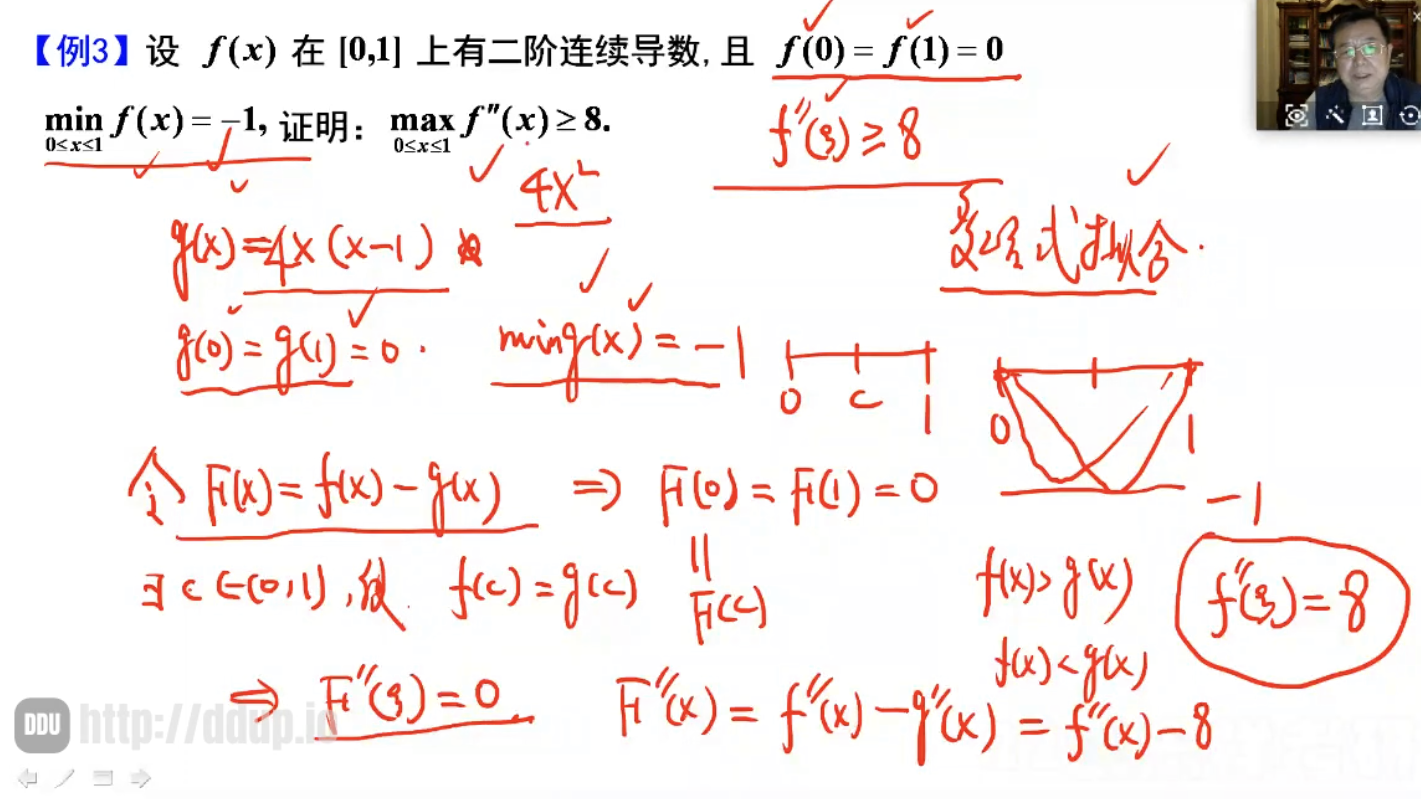 【例3】设 f(x) 在 [0,1] 上有二阶连续导数, 且 f(0) = f(1) = 0
min f(x) = −1, 证明: max f″(x) ≥ 8.
0≤x≤1 0≤x≤1
f″(ξ) ≥ 8
4x²
g(x) = 4x(x−1)
多项式拟合.
g(0) = g(1) = 0.
min g(x) = −1
0 c 1
0 1
−1
令 F(x) = f(x) − g(x) ⇒ F(0) = F(1) = 0
∃ c ∈ (0,1), 使 f(c) = g(c)
||
F(c)
f(x) > g(x)
f(x) < g(x)
f″(ξ) = 8
⇒ F″(ξ) = 0
F″(x) = f″(x) − g″(x) = f″(x) − 8
DDU